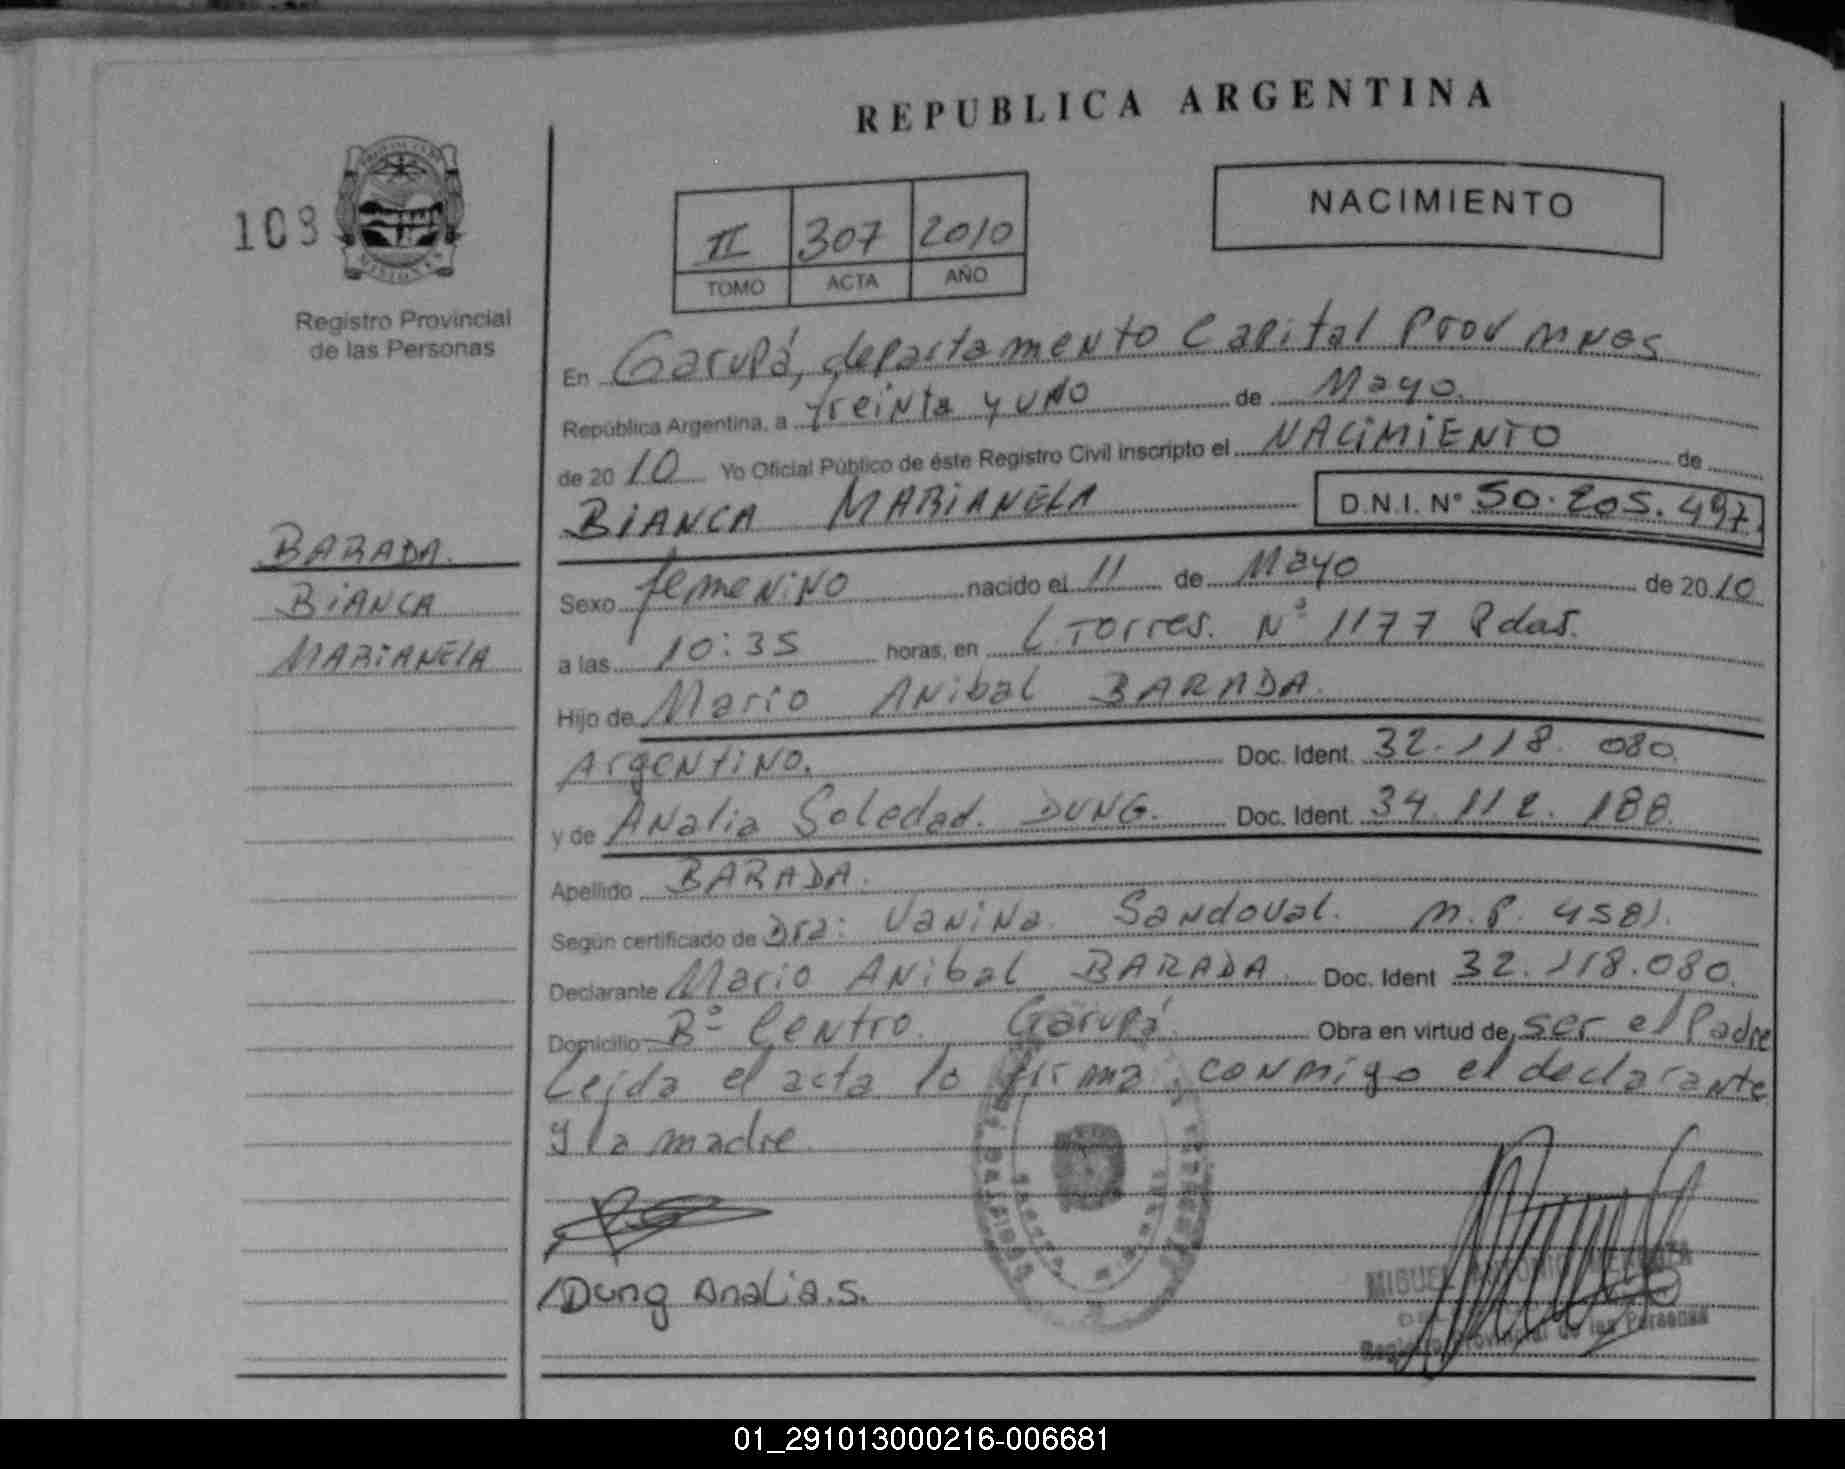 REPUBLICA ARGENTINA
NACIMIENTO
108
PROVINCIA DE
MISIONES
Registro Provincial
de las Personas
II 307 2010
TOMO ACTA AÑO
En Garupá, departamento Capital Prov Mnes
República Argentina, a treinta y uno de Mayo.
de 2010 Yo Oficial Público de éste Registro Civil inscripto el NACIMIENTO de
BIANCA MARIANELA D.N.I. N° 50.205.497.
BARADA.
BIANCA
MARIANELA
Sexo femenino nacido el 11 de Mayo de 2010
a las 10:35 horas, en L. Torres. N° 1177 Pdas.
Hijo de Mario Anibal BARADA.
Argentino. Doc. Ident. 32.118.080.
y de Analia Soledad. DUNG. Doc. Ident. 34.112.188.
Apellido BARADA.
Según certificado de Dra: Vanina Sandoval. M.P. 4581.
Declarante Mario Anibal BARADA. Doc. Ident 32.118.080.
Domicilio B° Centro. Garupá. Obra en virtud de ser el Padre
Leída el acta lo firma, conmigo el declarante
y la madre.
Dung Analia.s.
MIGUEL ANTONIO
Registro Provincial de las Personas
01_291013000216-006681